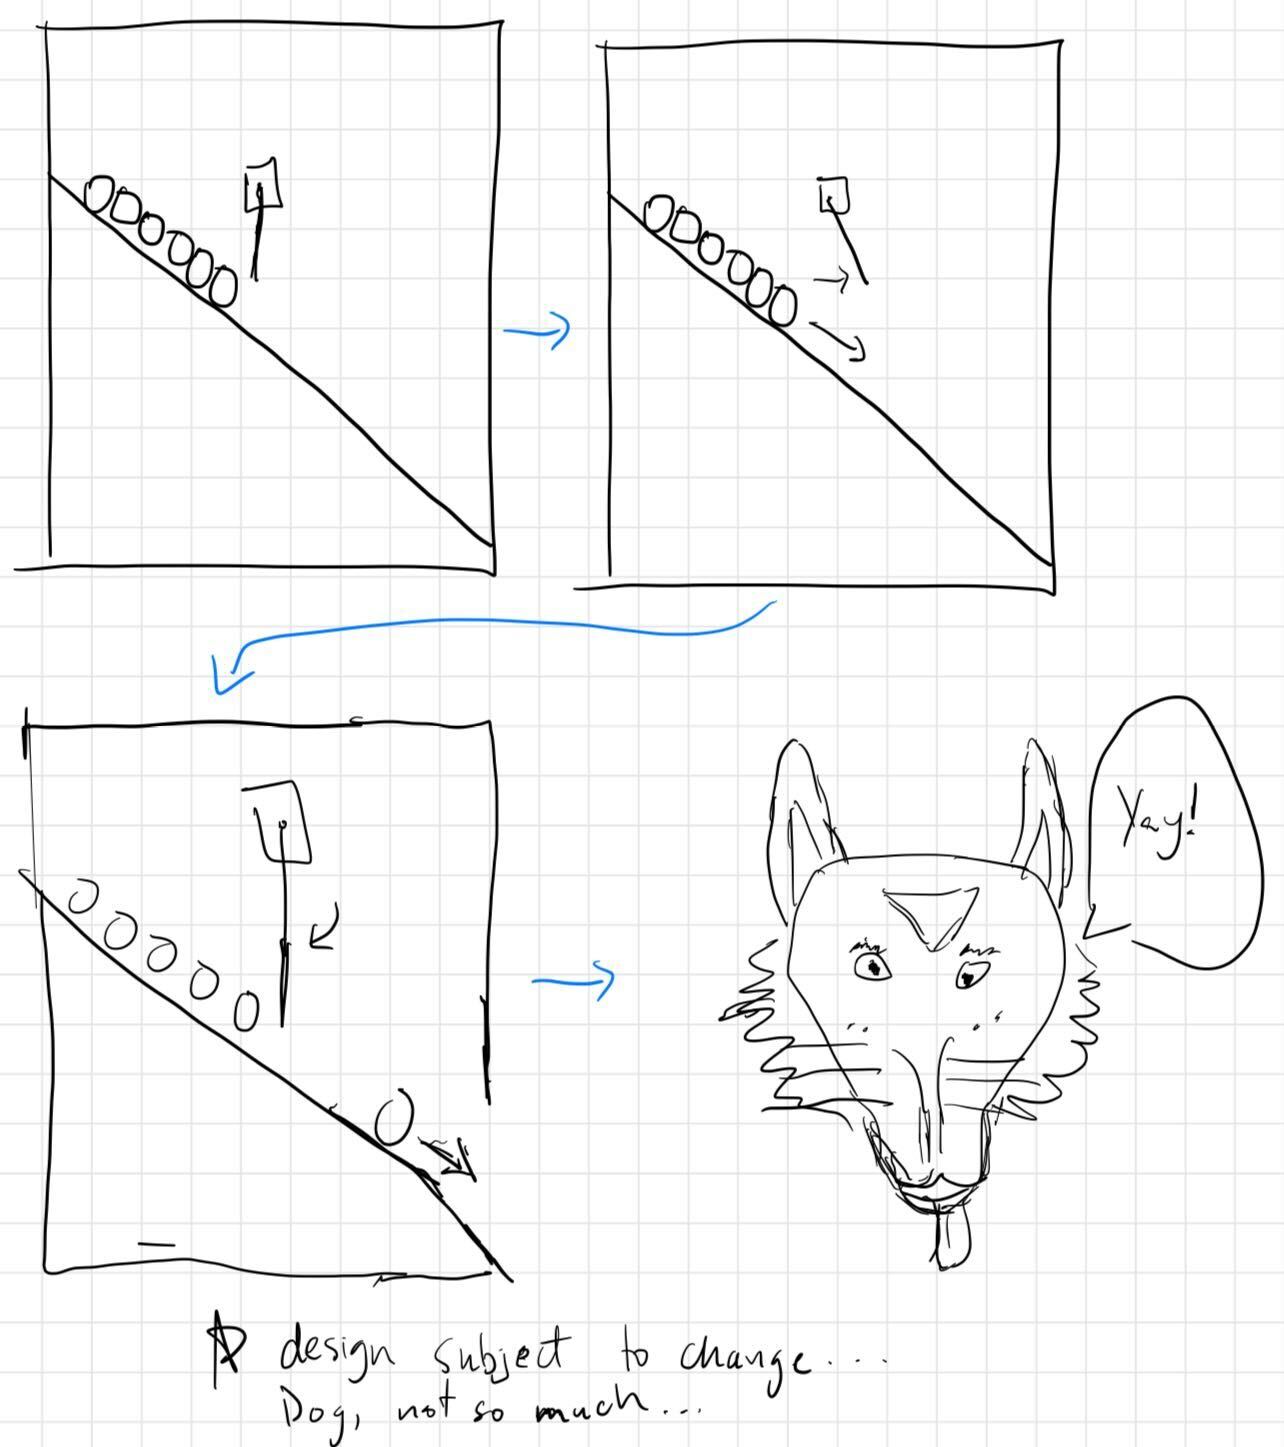 Yay!
design subject to change...
Dog, not so much...